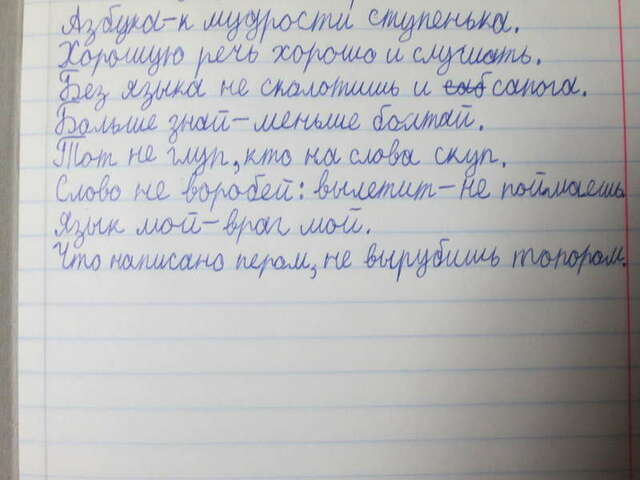 Азбука-к мудрости ступенька.
Хорошую речь хорошо и слушать.
Без языка не сколотишь и сапога.
Больше знай-меньше болтай.
Тот не глуп, кто на слова скуп.
Слово не воробей: вылетит-не поймаешь.
Язык мой-враг мой.
Что написано пером, не вырубишь топором.